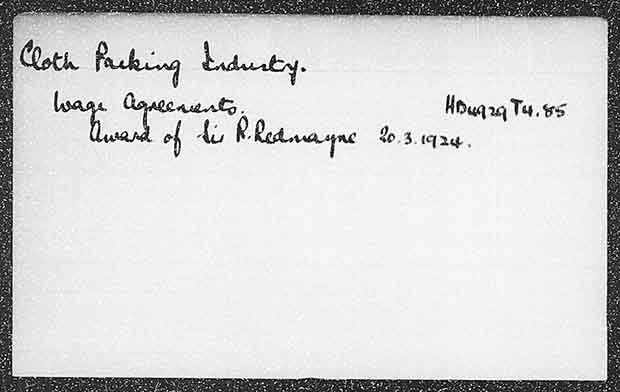 Cloth Packing Industry.
Wage Agreements. HD4929 T4.85
Award of Sir R. Redmayne 20.3.1924.